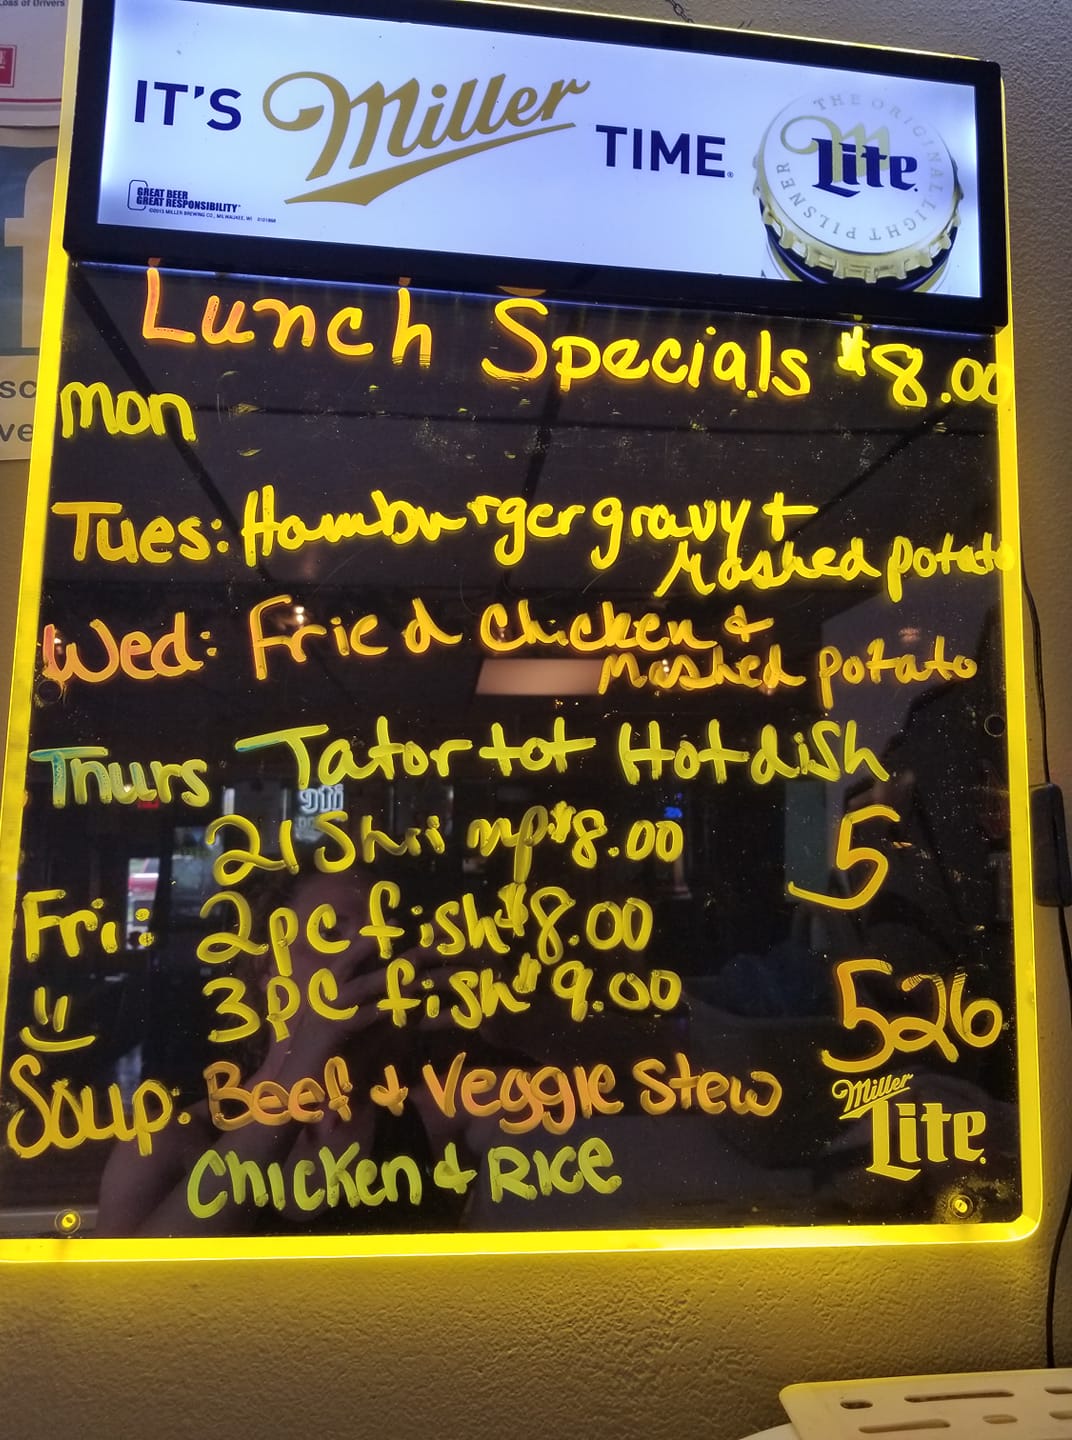 Loss of Drivers
IT'S Miller TIME.
THE ORIGINAL LIGHT PILSNER
Lite
GREAT BEER
GREAT RESPONSIBILITY®
©2015 MILLER BREWING CO., MILWAUKEE, WI
Lunch Specials $8.00
mon
Tues: Hamburger gravy +
Mashed potato
Wed: Fried Chicken &
Mashed potato
Thurs Tator tot Hotdish
21 Shrimp $8.00
5
Fri: 2pc fish $8.00
3pc fish $9.00
526
Soup: Beef & Veggie Stew
Miller
Lite
Chicken & Rice